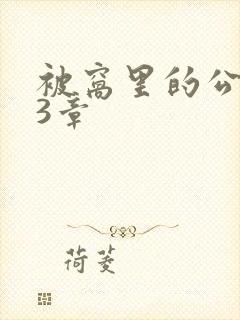 被窝里的公
3章
荷菱